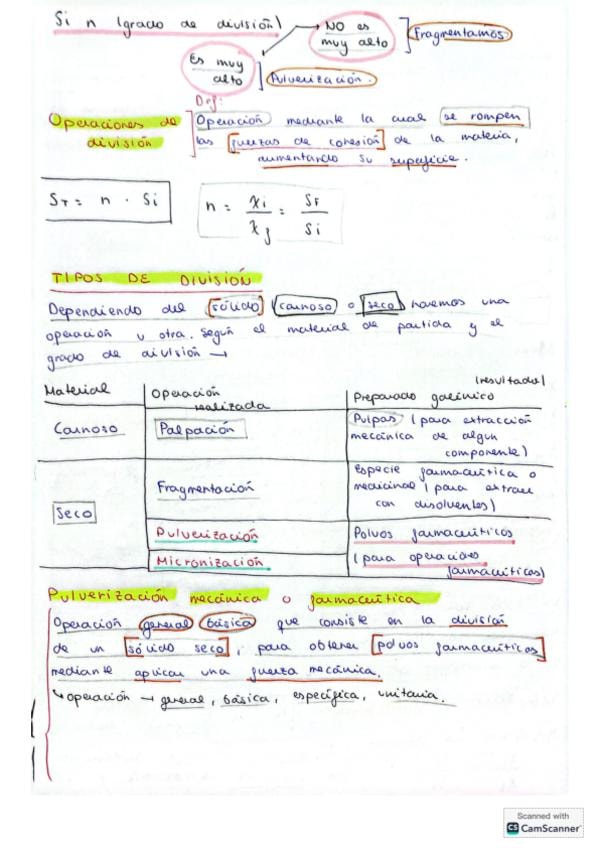 Si n (grado de división)
NO es
muy alto
Fragmentamos.
Es muy
alto
Pulverización.
Def:
Operaciones de
división
Operación mediante la cual se rompen
las fuerzas de cohesión de la materia,
aumentando su superficie.
ST = n · Si
n = Xi / Xf = SF / Si
TIPOS DE DIVISIÓN
Dependiendo del sólido (carnoso) o seco haremos una
operación u otra. Según el material de partida y el
grado de división →
Material
Operación
realizada
(resultado)
Preparado galénico
Carnoso
Palpación
Pulpas (para extracción
mecánica de algun
componente)
Seco
Fragmentación
Especie farmacéutica o
medicinal (para extraer
con disolventes)
Pulverización
Polvos farmacéuticos
Micronización
(para operaciones
farmacéuticas)
Pulverización mecánica o farmacéutica
Operación general básica que consiste en la división
de un sólido seco, para obtener polvos farmacéuticos
mediante aplicar una fuerza mecánica.
↳ operación → general, básica, específica, unitaria.
Scanned with
CS CamScanner